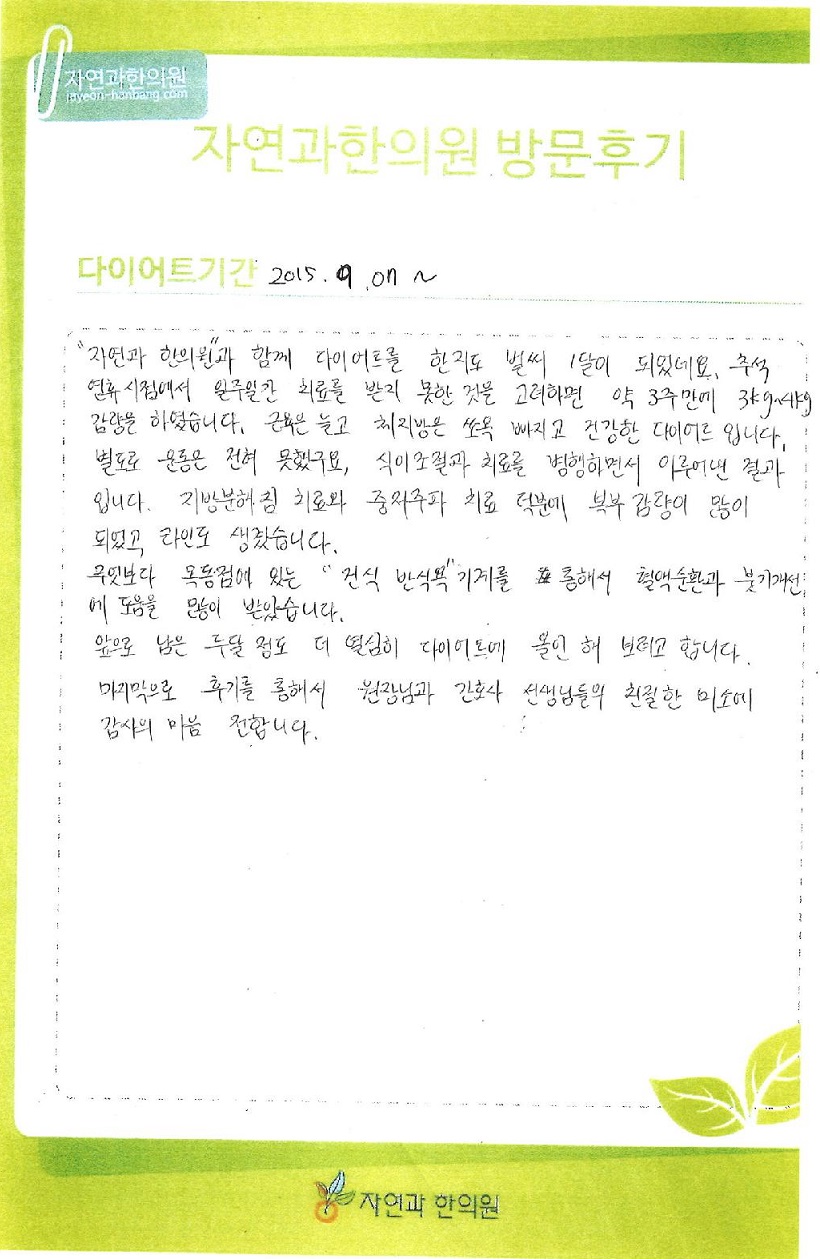 자연과한의원
jayeon-hanbang.com
자연과한의원 방문후기
다이어트기간 2015. 9
"자연과 한의원"과 함께 다이어트를 한지도 벌써 1달이 되었네요. 추석
연휴시점에서 일주일간 치료를 받지 못한 것을 고려하면 약 3주만에 3kg~4kg
감량을 하였습니다. 근육은 늘고 체지방은 쏘옥 빠지고 건강한 다이어트 입니다.
별도로 운동은 전혀 못했구요, 식이조절과 치료를 병행하면서 이루어낸 결과
입니다. 지방분해침 치료와 중저주파 치료 덕분에 복부 감량이 많이
되었고 라인도 생겼습니다.
무엇보다 목동점에 있는 "건식 반식욕" 기계를 통해서 혈액순환과 붓기개선
에 도움을 많이 받았습니다.
앞으로 남은 두달 정도 더 열심히 다이어트에 올인 해 보려고 합니다.
마지막으로 후기를 통해서 원장님과 간호사 선생님들의 친절한 미소에
감사의 마음 전합니다.
자연과 한의원